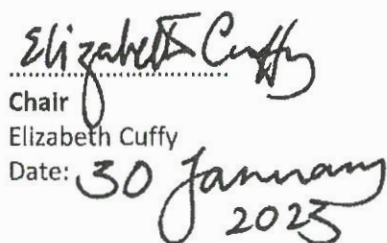 Elizabeth Cuffy
Chair
Elizabeth Cuffy
Date: 30 January
2023